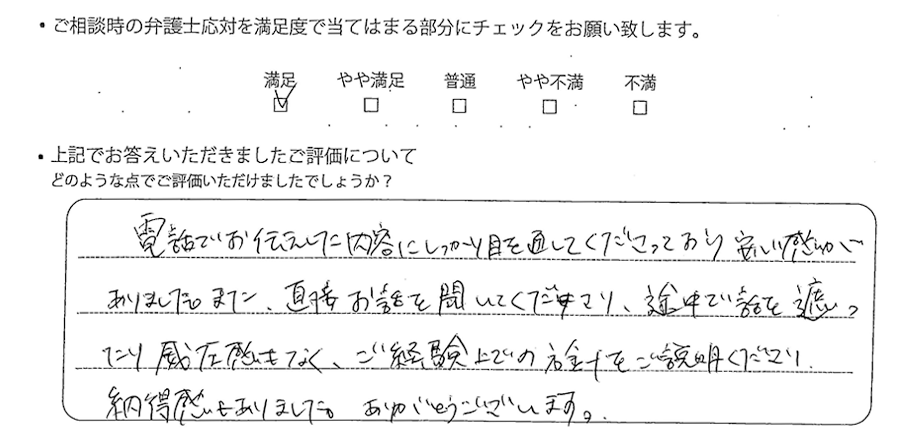 ・ご相談時の弁護士応対を満足度で当てはまる部分にチェックをお願い致します。
満足 やや満足 普通 やや不満 不満
・上記でお答えいただきましたご評価について
どのような点でご評価いただけましたでしょうか？
電話でお伝えした内容にしっかり目を通してくださっており 安心感が
ありました。また、直接お話を聞いてくださり、途中で話を遮っ
たり威圧感もなく、ご経験上での方針をご説明くださり
納得感もありました。ありがとうございます。